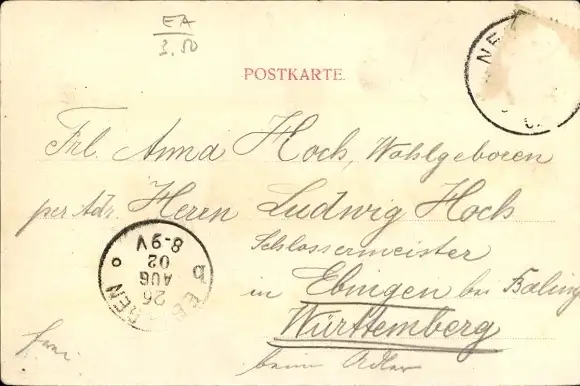 EA
3.50
POSTKARTE.
Frl. Anna Hoch, Wohlgeboren
per Adr. Herrn Ludwig Hoch
Schlossermeister
in Ebingen bei Baling
Württemberg
beim Adler
EBINGEN
26
AUG
02
8-9V
b
NE